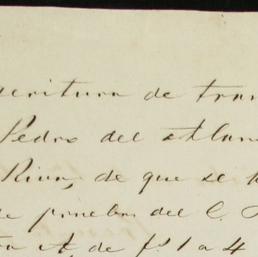 scritura de tran
Pedro del
de que se
de prueba del C.
de fs. 1 a 4